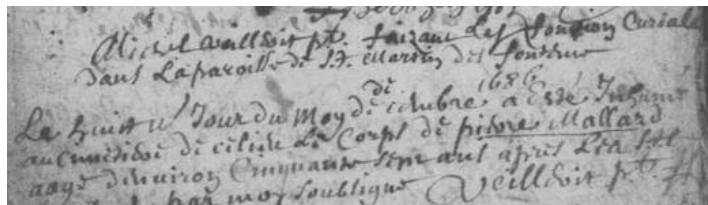 Michel Veilldoit pt. faizant Les fonction Curiale
Dans Laparoisse de St. Martin des fonteine
Le huitie Jour du Moy de decembre 1686 a Esté Inhumé
au Cimetiere de celieu Le Corps de pierre Mallard
aagé denuiron Cinquante sept ans apres Lea
par moy soubsigne Veilldoit pt.